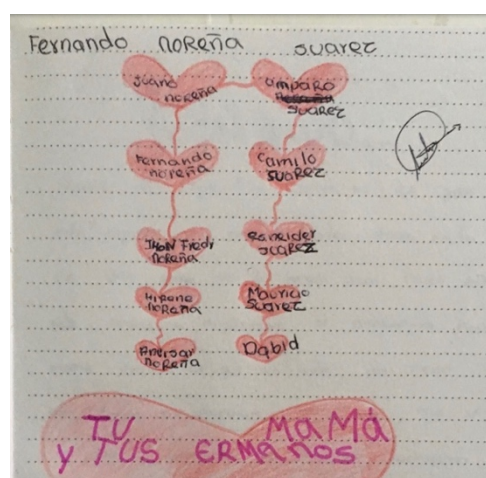 Fernando NOREÑA SUAREZ
NOREÑA
AMPARO
SUAREZ
Fernando
NOREÑA
Camilo
SUAREZ
JHON Fredy
NOREÑA
SUAREZ
NOREÑA
Mauricio
SUAREZ
NOREÑA
Dabid
TU MAMÁ
y TUS ERMANOS